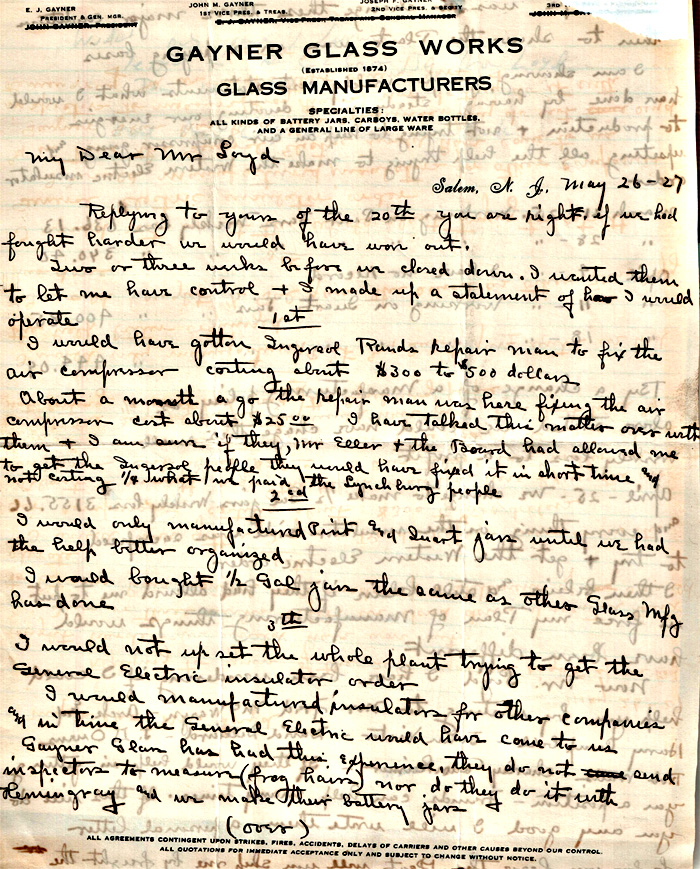 E. J. GAYNER
PRESIDENT & GEN. MGR.
JOHN GAYNER, PRESIDENT
JOHN M. GAYNER
1ST VICE PRES. & TREAS.
JOSEPH F. GAYNER
2ND VICE PRES. & SECY
3RD
GAYNER GLASS WORKS
(ESTABLISHED 1874)
GLASS MANUFACTURERS
SPECIALTIES:
ALL KINDS OF BATTERY JARS, CARBOYS, WATER BOTTLES,
AND A GENERAL LINE OF LARGE WARE
My Dear Mr Loyd
Salem, N. J., May 26-27
Replying to yours of the 20th you are right, if we had
fought harder we would have won out.
Two or three weeks before we closed down. I wanted them
to let me have control + I made up a statement of how I would
operate
1st
I would have gotton Ingersol Rands repair man to fix the
air compressor costing about $300 to $500 dollars
About a month a go the repair man was here fixing the air
compressor cost about $25.00 I have talked this matter over with
them + I am sure if they, Mr Eller + the Board had allowed me
to get the Ingersol people they would have fixed it in short time and
not costing 1/2 what we paid the Lynchburg people
2ed
I would only manufactured Pint and Quart jars until we had
the help better organized
I would bought 1/2 Gal jars the same as other Glass Mfg
has done
3th
I would not up set the whole plant trying to get the
General Electric insulator order
I would manufactured insulators for other companies
and in time the General Electric would have come to us
Gayner Glass has had this experience, they do not send
inspectors to measure (frog hairs) nor do they do it with
Hemingray and we make their battery jars
(over)
ALL AGREEMENTS CONTINGENT UPON STRIKES, FIRES, ACCIDENTS, DELAYS OF CARRIERS AND OTHER CAUSES BEYOND OUR CONTROL.
ALL QUOTATIONS FOR IMMEDIATE ACCEPTANCE ONLY AND SUBJECT TO CHANGE WITHOUT NOTICE.